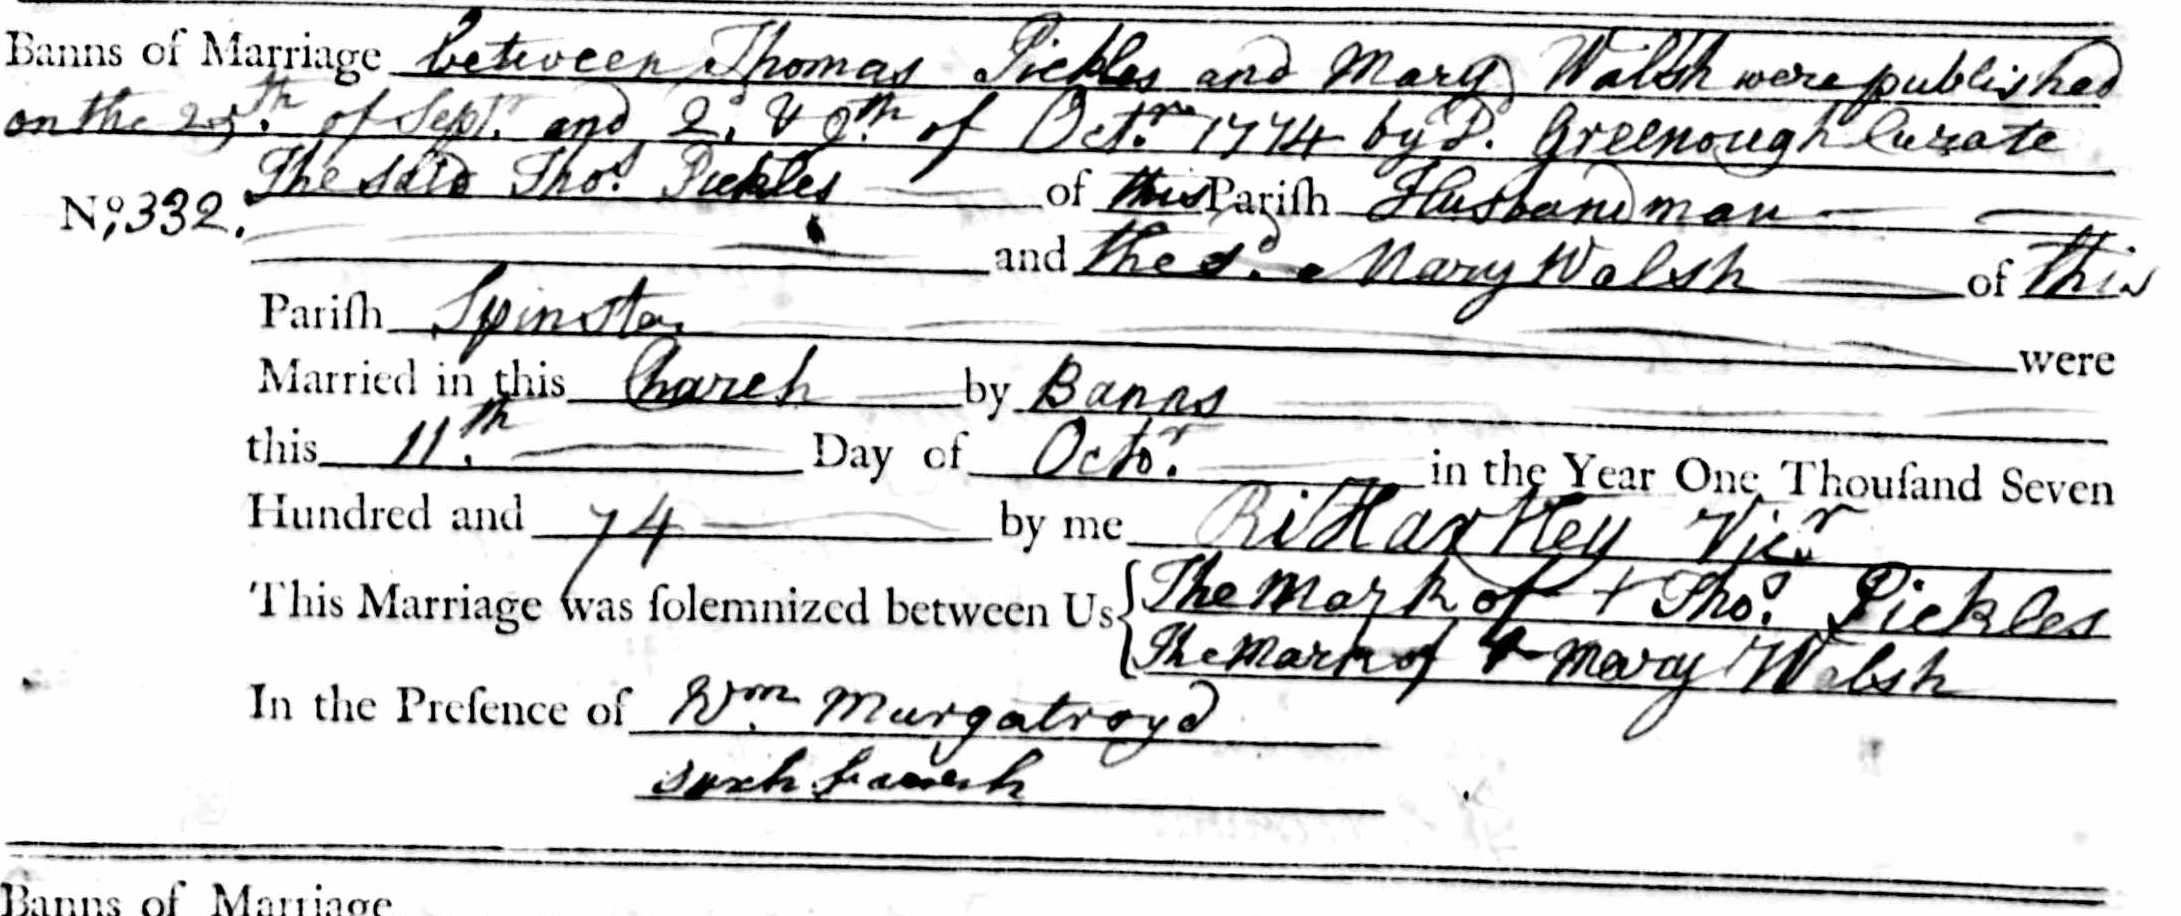 Banns of Marriage between Thomas Pickles and Mary Walsh were published
on the 25th. of Sept. and 2d. & 9th. of Octr. 1774 by P. Greenough Curate
No. 332. The said Thos. Pickles of this Pariſh Husbandman
and the sd. Mary Walsh of this
Pariſh Spinster were
Married in this Church by Banns
this 11th. Day of Octor. in the Year One Thouſand Seven
Hundred and 74 by me Ri Hartley Vicr
This Marriage was ſolemnized between Us { The Mark of + Thos. Pickles
The Mark of + Mary Walsh
In the Preſence of Wm. Murgatroyd
Banns of Marriage